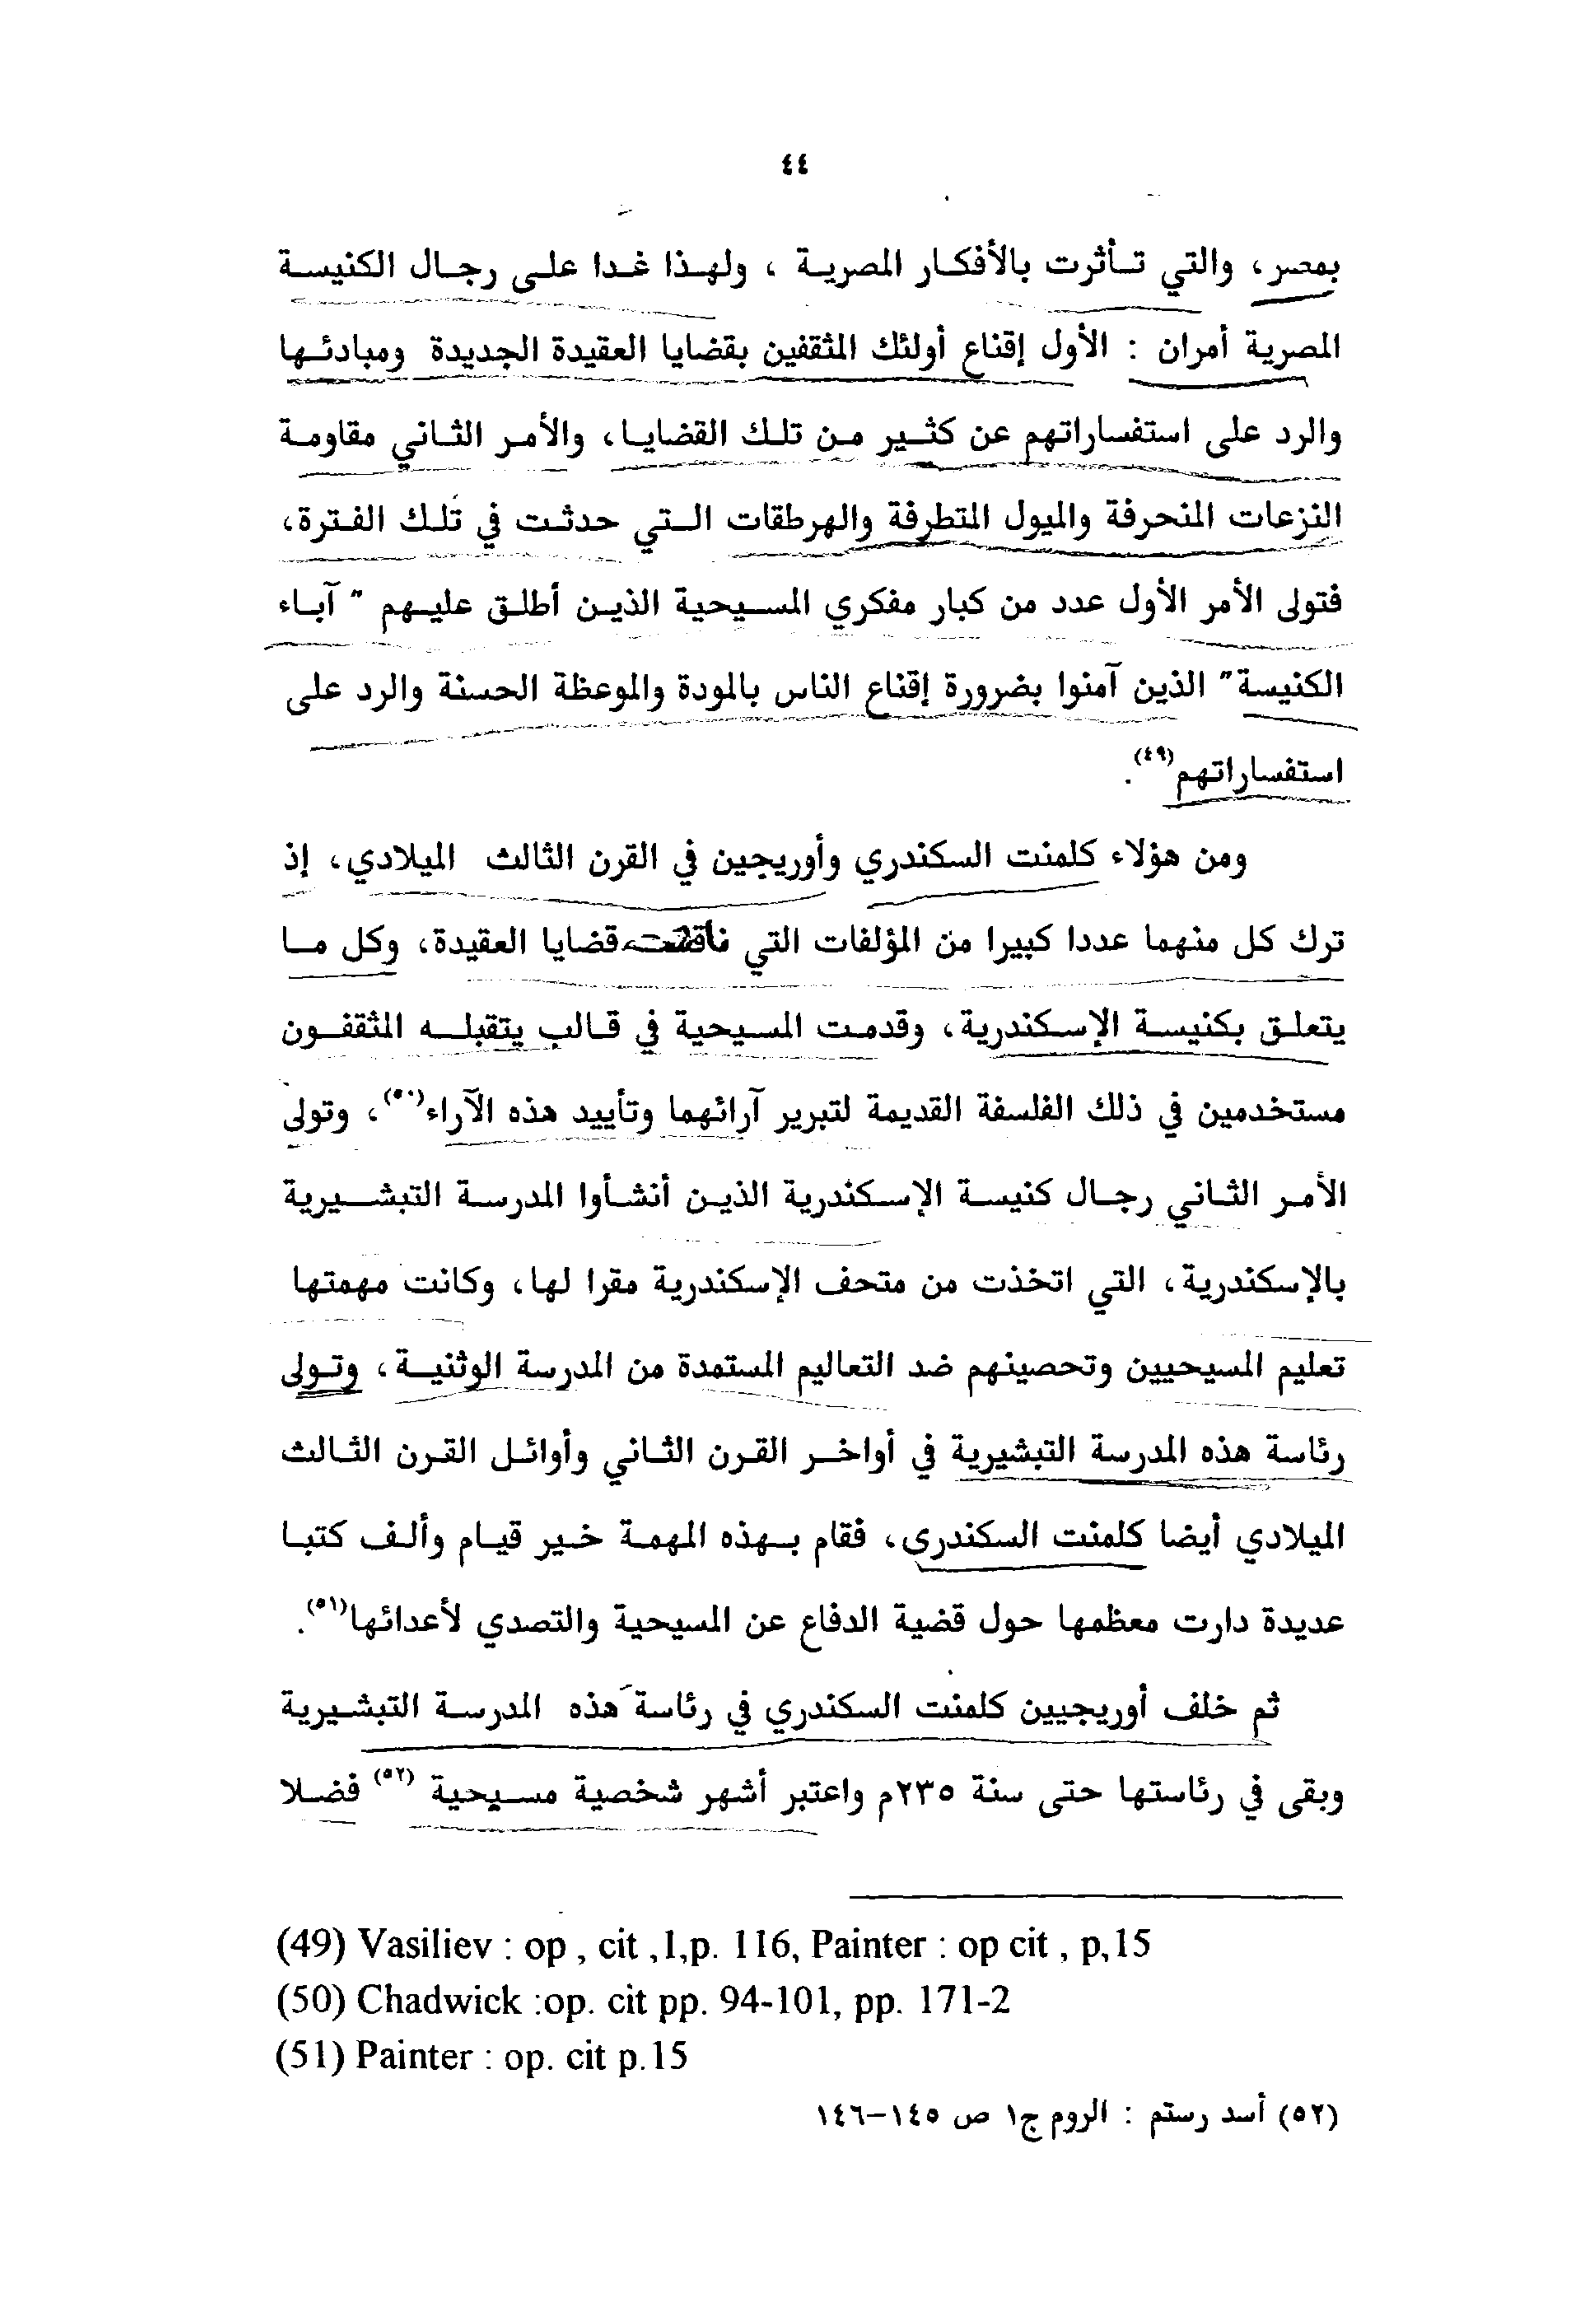 ٤٤
بمصر، والتي تأثرت بالأفكار المصرية ، ولهذا غدا على رجال الكنيسة
المصرية أمران : الأول إقناع أولئك المثقفين بقضايا العقيدة الجديدة ومبادئها
والرد على استفساراتهم عن كثير من تلك القضايا، والأمر الثاني مقاومة
النزعات المنحرفة والميول المتطرفة والهرطقات التي حدثت في تلك الفترة،
فتولى الأمر الأول عدد من كبار مفكري المسيحية الذين أطلق عليهم " آباء
الكنيسة" الذين آمنوا بضرورة إقناع الناس بالمودة والموعظة الحسنة والرد على
استفساراتهم(٤٩).
ومن هؤلاء كلمنت السكندري وأوريجين في القرن الثالث الميلادي، إذ
ترك كل منهما عددا كبيرا من المؤلفات التي قضايا العقيدة، وكل ما
يتعلق بكنيسة الإسكندرية، وقدمت المسيحية في قالب يتقبله المثقفون
مستخدمين في ذلك الفلسفة القديمة لتبرير آرائهما وتأييد هذه الآراء(٥٠)، وتولى
الأمر الثاني رجال كنيسة الإسكندرية الذين أنشأوا المدرسة التبشيرية
بالإسكندرية، التي اتخذت من متحف الإسكندرية مقرا لها، وكانت مهمتها
تعليم المسيحيين وتحصينهم ضد التعاليم المستمدة من المدرسة الوثنية، وتولى
رئاسة هذه المدرسة التبشيرية في أواخر القرن الثاني وأوائل القرن الثالث
الميلادي أيضا كلمنت السكندرى، فقام بهذه المهمة خير قيام وألف كتبا
عديدة دارت معظمها حول قضية الدفاع عن المسيحية والتصدي لأعدائها(٥١).
ثم خلف أوريجيين كلمنت السكندري في رئاسة هذه المدرسة التبشيرية
وبقى في رئاستها حتى سنة ٢٣٥م واعتبر أشهر شخصية مسيحية (٥٢) فضلا
(49) Vasiliev : op , cit ,1,p. 116, Painter : op cit , p,15
(50) Chadwick :op. cit pp. 94-101, pp. 171-2
(51) Painter : op. cit p.15
(٥٢) أسد رستم : الروم ج١ ص ١٤٥-١٤٦